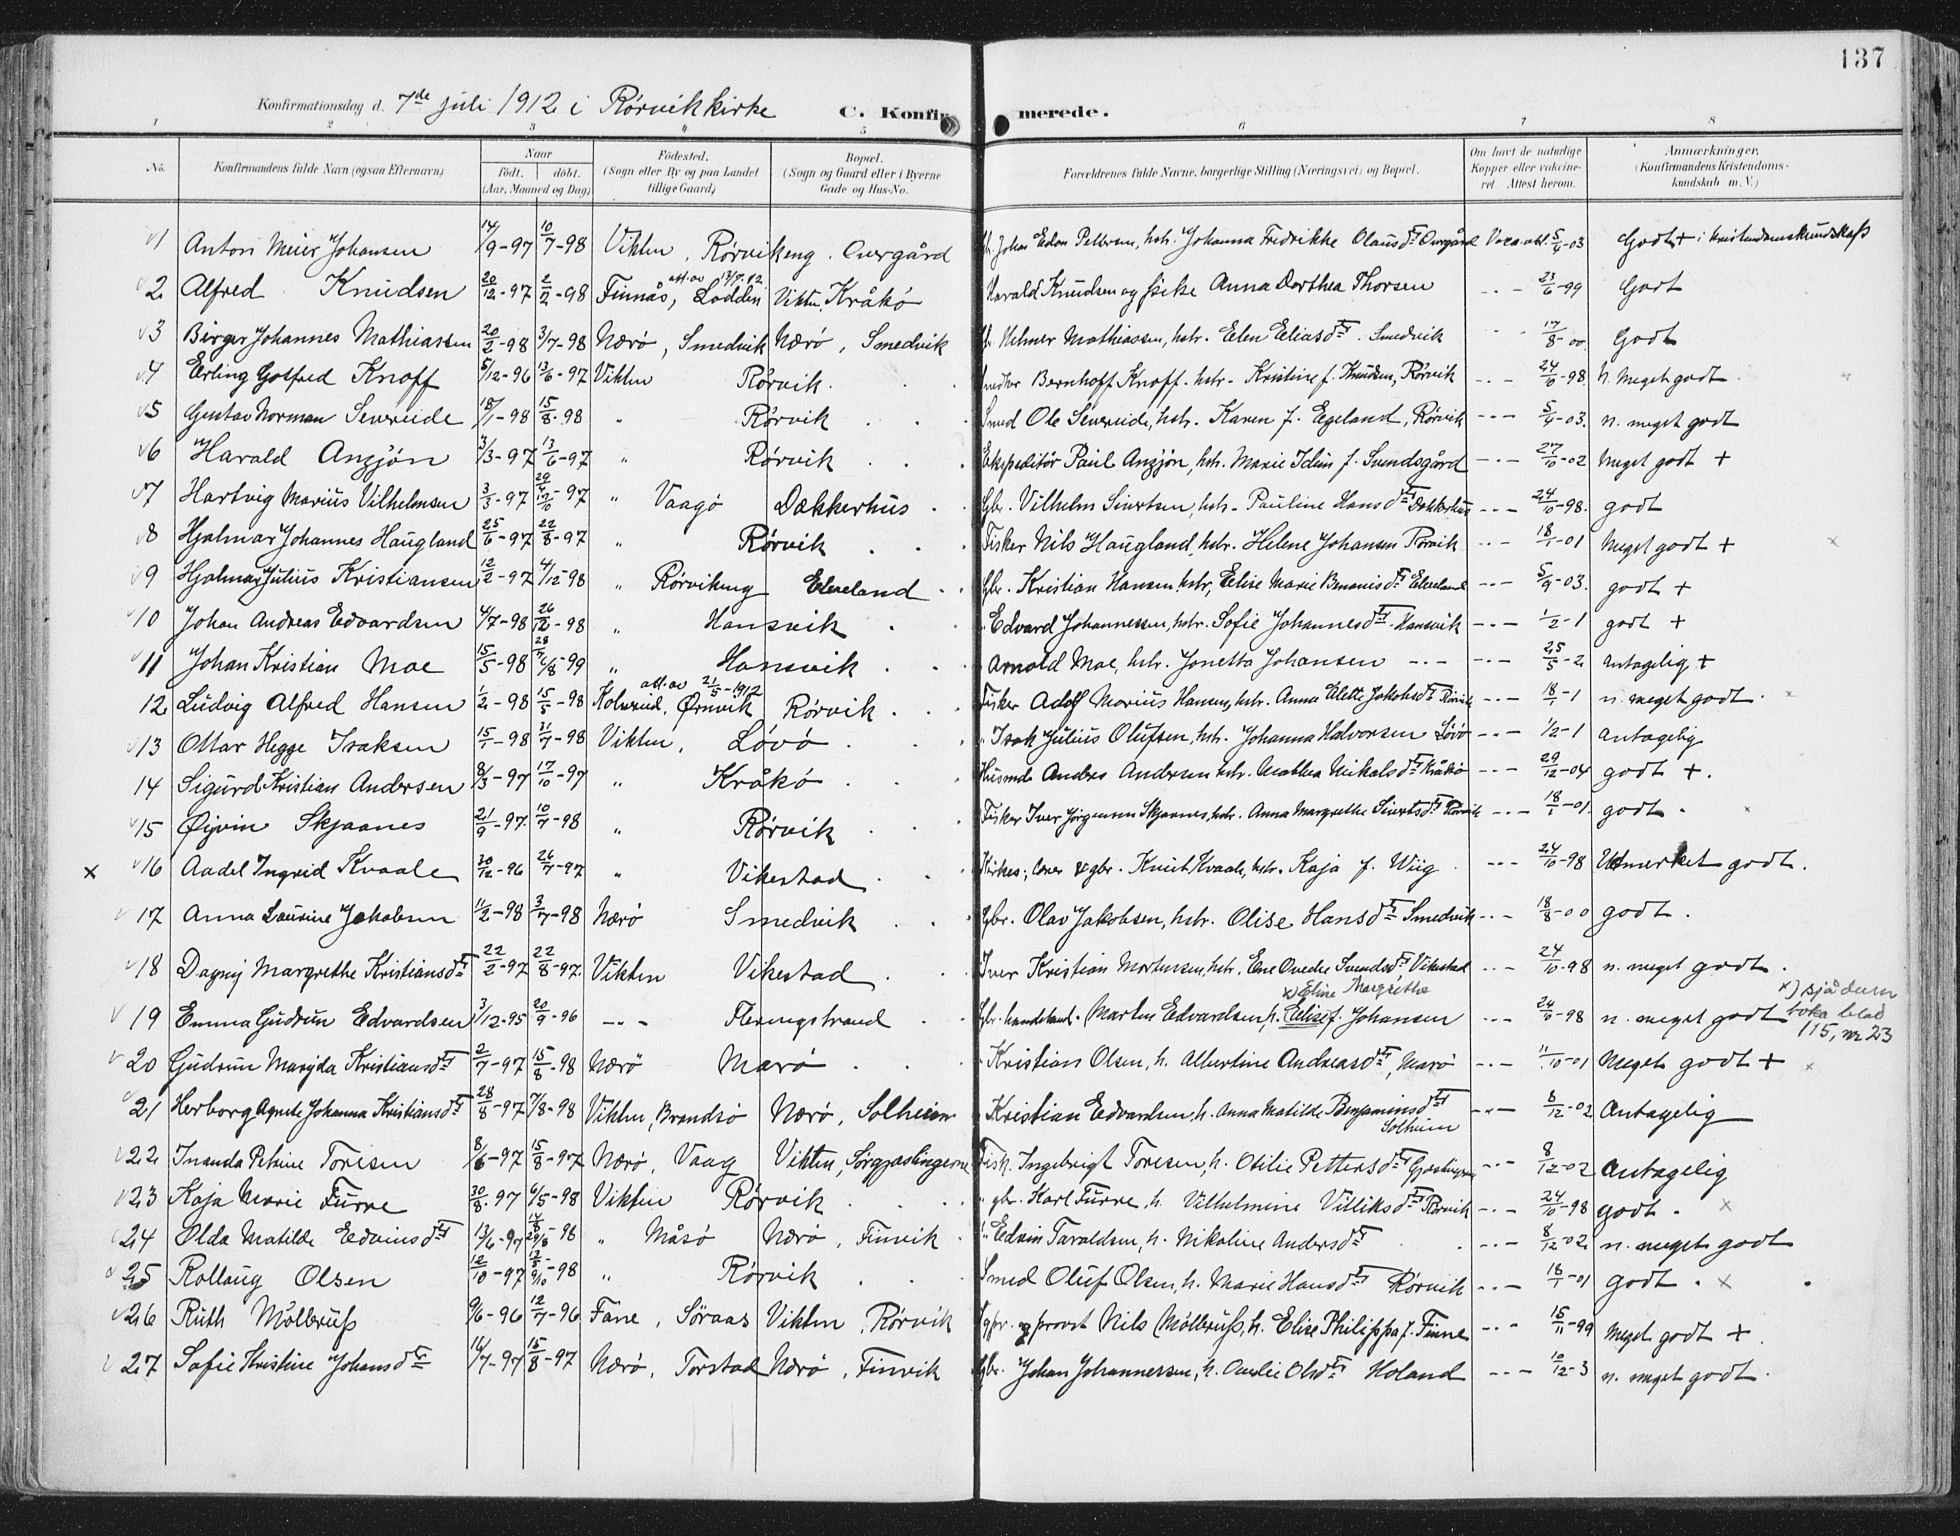 137
Konfirmationsdag d. 7de juli 1912 i Rørvik kirke C. Konfirmerede.
1 2 3 4 5 6 7 8
No. Konfirmandens fulde Navn (ogsaa Efternavn) Naar født. døbt. (Aar, Maaned og Dag) Fødested. (Sogn eller By og paa Landet tillige Gaard) Bopæl. (Sogn og Gaard eller i Byerne Gade og Hus-No. Forældrenes fulde Navne, borgerlige Stilling (Næringsvei) og Bopæl. Om havt de naturlige Kopper eller vaccineret. Attest herom. Anmærkninger, (Konfirmandens Kristendomskundskab m. V.)
1 Anton Meier Johansen 14/9-97 10/7-98 Vikten, Rørvikeng. Overgård Johan Edon Pettersen, hstr. Johanna Fredrikke Olausdtr Overgård Vacc. att. 5/4-03 Godt + i kristendomskundskap
2 Alfred Knudsen 20/12-97 2/2-98 Finnås, Lodden att. av Vikten, Kråkö Harald Knudsen og Anna Dorthea Thorsen - - - 23/6-99 Godt
3 Birger Johannes Mathiassen 20/2-98 3/7-98 Nærö, Smedvik Nærö, Smedvik Helmer Mathiassen, hstr. Elen Eliasdtr. Smedvik 17/8-00 Godt
4 Erling Gotfred Knoff 5/12-96 13/6-97 Vikten Rörvik. Bernhoff Knoff. hstr. Kristine f. Knudsen, Rörvik - - - 24/10-98. n. meget godt
5 Gustav Norman Severeide 18/1-98 15/8-98 " Rörvik Smed Ole Severeide, hstr. Karen f. Egeland, Rörvik - - - 5/4-03. n. meget godt
6 Harald Anzjön 3/3-97 13/6-97 " Rörvik Ekspeditör Paul Anzjön, hstr. Marie Idun f. Svendsgård - - - 27/10-02 Meget godt +
7 Hartvig Marius Vilhelmsen 3/3-97 " Vaagö Dækkerhus Gbr. Vilhelm Sivertsen, hstr. Pauline Hansdtr Dækkerhus - - - 24/10-98. godt
8 Hjalmar Johannes Haugland 25/6-97 22/8-97 " Rørvik Fisker Nils Haugland, hstr. Helene Johansen Rørvik - - - 18/1-01 Meget godt +
9 Hjalmar Julius Kristiansen 12/2-97 4/12-98 " Rørvikeng Eleveland Gbr. Kristian Hansen, hstr. Elise Marie dtr Eleveland - - - 5/4-03. godt +
10 Johan Andreas Edvardsen 4/7-98 26/12-98 " Hansvik " Edvard Johannessen, hstr. Sofie Johannesdtr. Hansvik - - - 1/2-1 godt +
11 Johan Kristian Moe 15/5-98 28/7 6/8-99 " Hansvik " Arnold Moe, hstr. Jonetta Johansen - - - - - - 25/5-2 antagelig +
12 Ludvig Alfred Hansen 1/2-98 15/5-98 Kolvereid, Ørnvik att. av 21/5-1912 Rørvik Fisker Adolf Marius Hansen, hstr. Anna Elette Jakobsdtr Rörvik - - - 18/1-1 n. meget godt
13 Ottar Hegge Isaksen 15/1-98 31/7-98 Vikten, Lövö " Isak Julius Olufsen, hstr. Johanna Halvorsen Lövö - - - 1/2-1 antagelig
14 Sigurd Kristian Andersen 8/3-97 17/10-97 " Kråkö Husmd Anders Andersen hstr. Mathea Mikalsdtr Kråkö - - - 29/12-04 godt +.
15 Øivin Skjaanes 21/9-97. 10/7-98 " Rørvik Fisker Iver Jörgensen Skjaanes, hstr. Anna Margrethe Sivertsdtr Rørvik - - - 18/1-01. godt.
x 16 Aadel Ingrid Kvaale 30/12-96 26/7-97 " Vikestad Kirkes., lærer & gbr. Knut Kvaale, hstr. Kaja f. Wiig - - - 24/10-98 Utmerket godt.
17 Anna Laurine Jakobsen 11/2-98 3/7-98 Nærö Smedvik Gbr. Olav Jakobsen, hstr. Olise Hansdtr Smedvik - - - 18/8-00 godt.
18 Dagny Margrethe Kristiansdtr 22/2-97 22/8-97. Vikten Vikestad Iver Kristian Mortensen, hstr. Ovedie Svendsdtr Vikestad - - - 24/10-98 n. meget godt.
x) Eline Margrethe
19 Emma Gudrun Edvardsen 3/12-95 20/9-96 - - - Fleringstrand Gbr. Martin Edvardsen, h. Elise f. Johansen - - - 24/10-98 n. meget godt x) sjå boka blad 115, nr 23
20 Gudrun Maryda Kristiansdtr 2/7-97 15/8-98 Nærö Marö Kristian Olsen, h. Albertine Andreasdtr, Marö - - - 11/10-01 Meget godt +
21 Herborg Agnete Johanna Kristiansdtr 28/8-97 7/8-98 Vikten, Brandsö Nærö, Solheim Kristian Edvardsen, h. Anna Matilde Benjaminsdtr Solheim - - - 8/12-02 Antagelig
22 Inanda Petrine Toresen 8/6-97 15/8-97 Nærö, Vaag Vikten, Sørgjæslingerne Fisk. Ingebrigt Toresen, h. Otilie Pettersdtr - - - 8/12-02 Antagelig
23 Kaja Marie Furre 30/8-97 6/5-98 Vikten Rørvik " gbr. Karl Furre, h. Vilhelmine Villiksdtr Rörvik - - - 24/10-98 godt. x
24 Olda Matilde Edvinsdtr 13/6-97 " Måsö Nærö, Finvik " Edvin Taraldsen, h. Nikoline Andersdtr - - - 8/12-02 n. meget godt
25 Rollaug Olsen 12/10-97 " Rørvik Smed Oluf Olsen, h. Marie Hansdtr Rørvik - - - 18/1-01 godt. x
26 Ruth Möllerup 9/6-96 12/7-96 Fane, Söraas Vikten, Rörvik provst Nils Möllerup, h. Elise Philippa f. Finne - - - 15/11-99 Meget godt +.
27 Sofie Kristine Johansdtr 16/7-97 15/8-97 Nærö, Torstad Nærö, Finvik Gbr. Johan Johannessen, h. Amelie Olsdtr Holand - - - 10/12-3 n. meget godt.